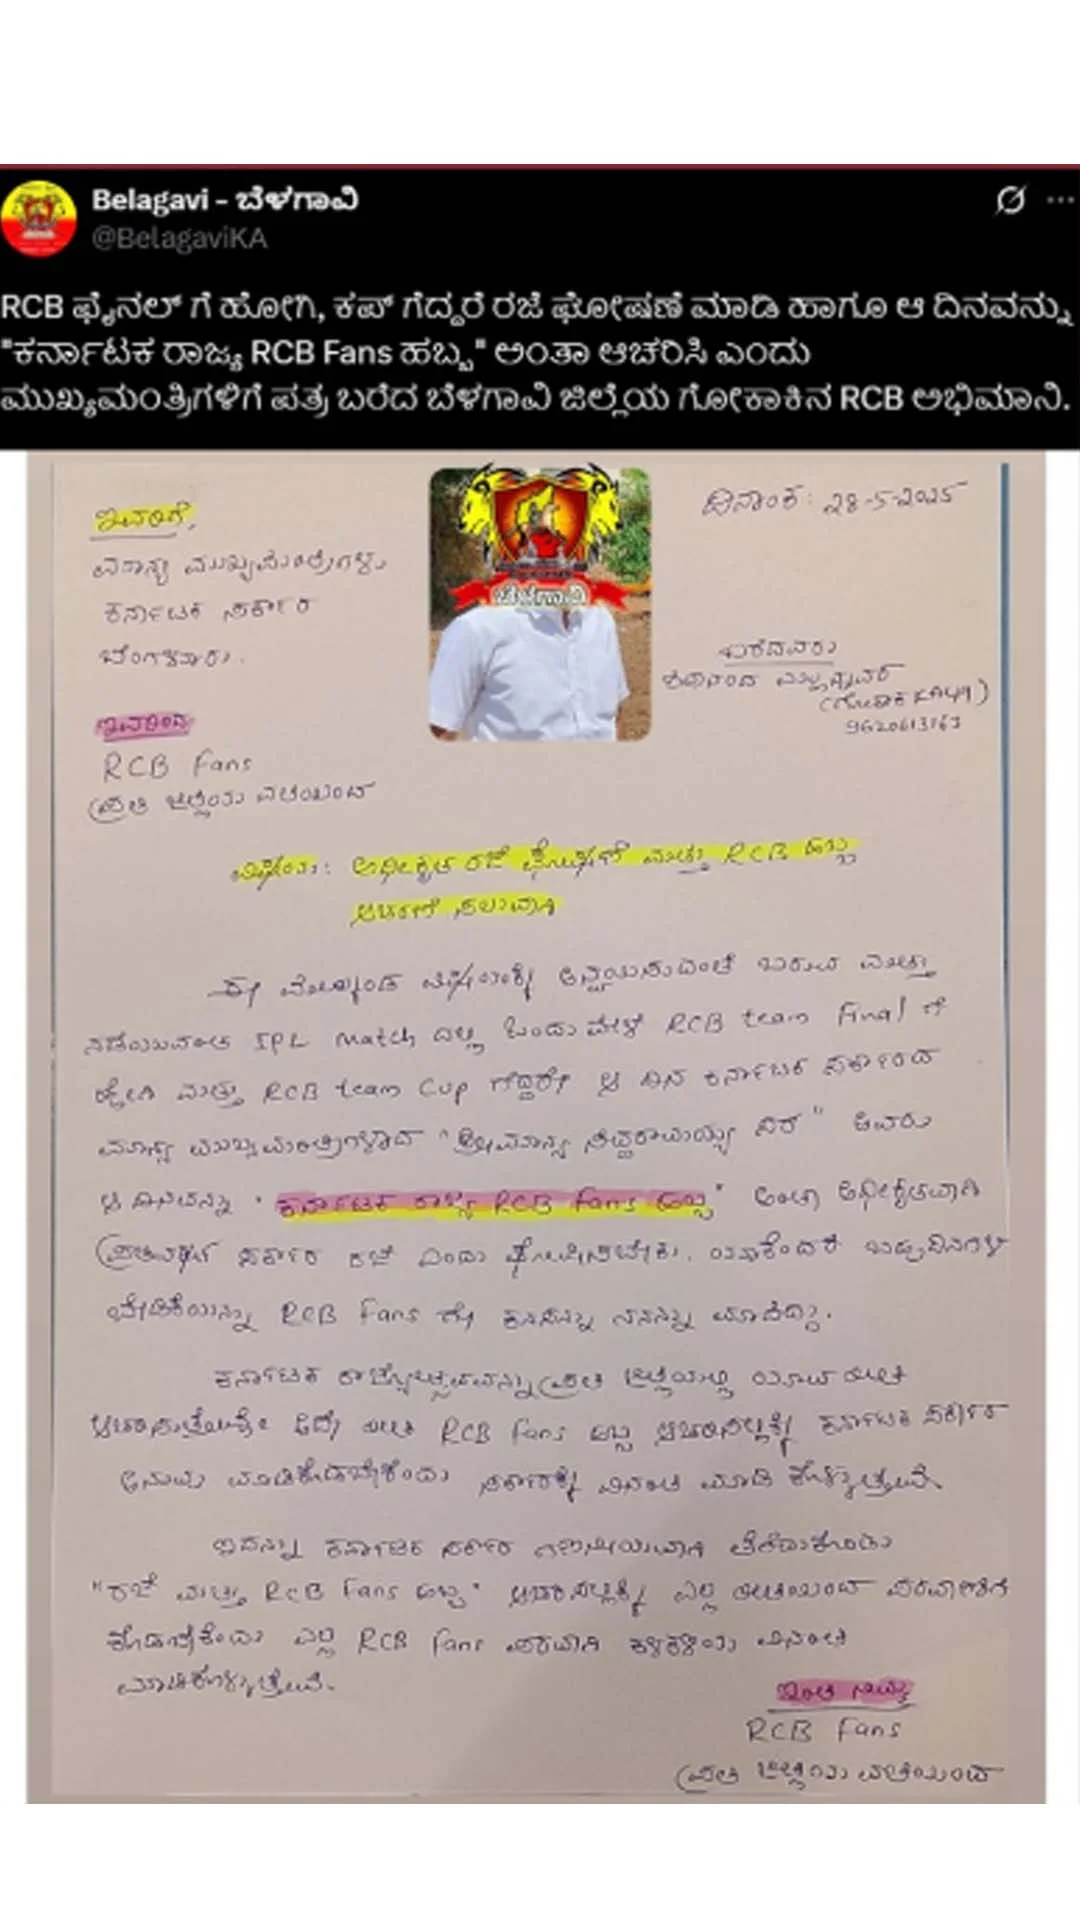 Belagavi - ಬೆಳಗಾವಿ
@BelagaviKA
RCB ಫೈನಲ್ ಗೆ ಹೋಗಿ, ಕಪ್ ಗೆದ್ದರೆ ರಜೆ ಘೋಷಣೆ ಮಾಡಿ ಹಾಗೂ ಆ ದಿನವನ್ನು
"ಕರ್ನಾಟಕ ರಾಜ್ಯ RCB Fans ಹಬ್ಬ" ಅಂತಾ ಆಚರಿಸಿ ಎಂದು
ಮುಖ್ಯಮಂತ್ರಿಗಳಿಗೆ ಪತ್ರ ಬರೆದ ಬೆಳಗಾವಿ ಜಿಲ್ಲೆಯ ಗೋಕಾಕಿನ RCB ಅಭಿಮಾನಿ.
ದಿನಾಂಕ: 28-5-2025
ಇವರಿಗೆ,
ಮಾನ್ಯ ಮುಖ್ಯಮಂತ್ರಿಗಳು
ಕರ್ನಾಟಕ ಸರ್ಕಾರ
ಬೆಂಗಳೂರು.
ಬೆಳಗಾವಿ
ಬರೆದವರು
ಶಿವಾನಂದ
(ಗೋಕಾಕ KA49)
9620613163
ಇವರಿಂದ
RCB Fans
ಪ್ರತಿ ಜಿಲ್ಲೆಯ ವತಿಯಿಂದ
ವಿಷಯ: ಅಧೀಕೃತ ರಜೆ ಘೋಷಣೆ ಮತ್ತು RCB ಹಬ್ಬ
ಆಚರಣೆ ಸಲುವಾಗಿ
ಈ ಮೇಲ್ಕಂಡ ವಿಷಯಕ್ಕೆ ಅನ್ವಯಿಸುವಂತೆ ಬರುವ ಮತ್ತು
ನಡೆಯುವಂತ IPL Match ನಲ್ಲಿ ಒಂದು ವೇಳೆ RCB team Final ಗೆ
ಹೋಗಿ ಮತ್ತು RCB team Cup ಗೆದ್ದರೇ ಆ ದಿನ ಕರ್ನಾಟಕ ಸರ್ಕಾರದ
ಮಾನ್ಯ ಮುಖ್ಯಮಂತ್ರಿಗಳಾದ "ಶ್ರೀಮಾನ್ಯ ಸಿದ್ದರಾಮಯ್ಯ ಸರ್" ಅವರು
ಆ ದಿನವನ್ನು "ಕರ್ನಾಟಕ ರಾಜ್ಯ RCB Fans ಹಬ್ಬ" ಅಂತಾ ಅಧೀಕೃತವಾಗಿ
ಪ್ರತಿವರ್ಷ ಸರ್ಕಾರಿ ರಜೆ ಎಂದು ಘೋಷಿಸಬೇಕು. ಯಾಕೆಂದರೆ ಬಹುದಿನಗಳ
ಬೇಡಿಕೆಯನ್ನು RCB Fans ಕನಸನ್ನು ನನಸನ್ನು ಮಾಡಿದ್ದು.
ಕರ್ನಾಟಕ ರಾಜ್ಯೋತ್ಸವವನ್ನು ಪ್ರತಿ ಜಿಲ್ಲೆಯಲ್ಲಿ ಯಾವ ರೀತಿ
ಆಚರಿಸುತ್ತೇವೆಯೋ ಅದೇ ರೀತಿ RCB Fans ಹಬ್ಬ ಆಚರಿಸಲಿಕ್ಕೆ ಕರ್ನಾಟಕ ಸರ್ಕಾರ
ಅನುವು ಮಾಡಿಕೊಡಬೇಕೆಂದು ಸರ್ಕಾರಕ್ಕೆ ವಿನಂತಿ ಮಾಡಿ ಕೊಳ್ಳುತ್ತೇವೆ.
ಇದನ್ನು ಕರ್ನಾಟಕ ಸರ್ಕಾರ ಗಣನೀಯವಾಗಿ ತೆಗೆದುಕೊಂಡು
"ರಜೆ ಮತ್ತು RCB Fans ಹಬ್ಬ" ಆಚರಿಸಲಿಕ್ಕೆ ಎಲ್ಲ ರೀತಿಯಿಂದ ಪರವಾಣಿಗೆ
ಕೊಡಬೇಕೆಂದು ಎಲ್ಲ RCB Fans ಪರವಾಗಿ ಕಳಕಳಿಯ ವಿನಂತಿ
ಮಾಡಿಕೊಳ್ಳುತ್ತೇವೆ.
ಇಂತಿ ನಿಮ್ಮ
RCB Fans
ಪ್ರತಿ ಜಿಲ್ಲೆಯ ವತಿಯಿಂದ